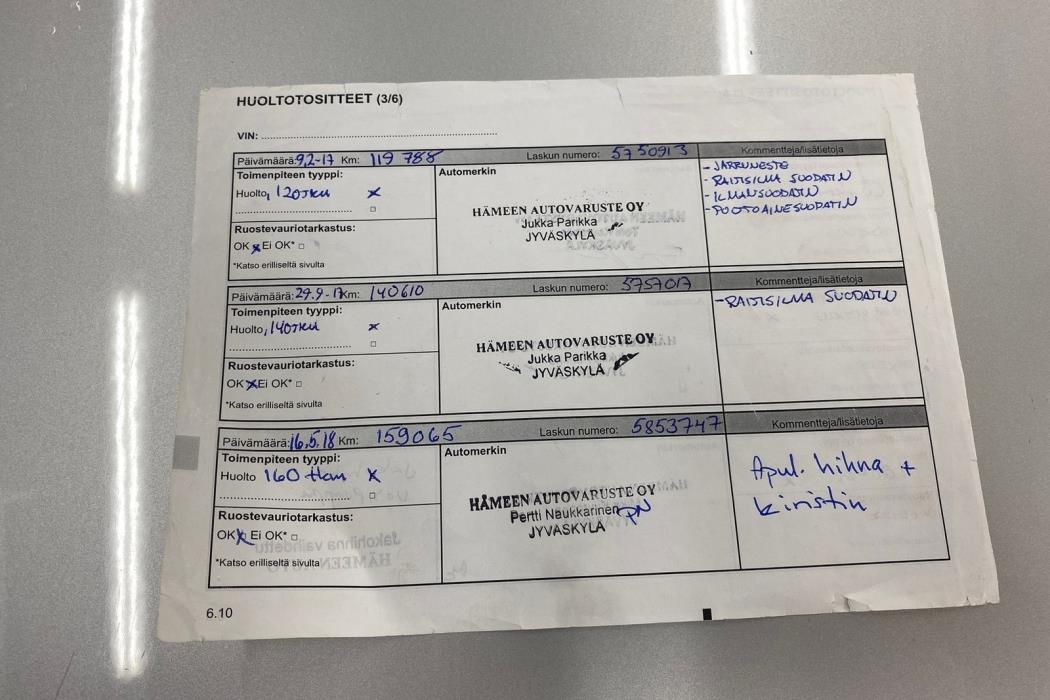 HUOLTOTOSITTEET (3/6)
VIN:
Päivämäärä: 9,2-17 Km: 119 788 Laskun numero: 5750913 Kommentteja/lisätietoja
Toimenpiteen tyyppi:
Huolto, 120TKM x
Ruostevauriotarkastus:
OK x Ei OK*
*Katso erilliseltä sivulta
Automerkin
HÄMEEN AUTOVARUSTE OY
Jukka Parikka
JYVÄSKYLÄ
- JARRUNESTE
- RAITISILMA SUODATIN
- ILMANSUODATIN
- POLTOAINESUODATIN
Päivämäärä: 29.9-17 Km: 140610 Laskun numero: 5757017 Kommentteja/lisätietoja
Toimenpiteen tyyppi:
Huolto, 140TKM x
Ruostevauriotarkastus:
OK x Ei OK*
*Katso erilliseltä sivulta
Automerkin
HÄMEEN AUTOVARUSTE OY
Jukka Parikka
JYVÄSKYLÄ
- RAITISILMA SUODATIN
Päivämäärä: 16.5.18 Km: 159065 Laskun numero: 5853747 Kommentteja/lisätietoja
Toimenpiteen tyyppi:
Huolto 160 tkm x
Ruostevauriotarkastus:
OK x Ei OK*
*Katso erilliseltä sivulta
Automerkin
HÄMEEN AUTOVARUSTE OY
Pertti Naukkarinen PN
JYVÄSKYLÄ
Apul. hihna +
kiristin
6.10